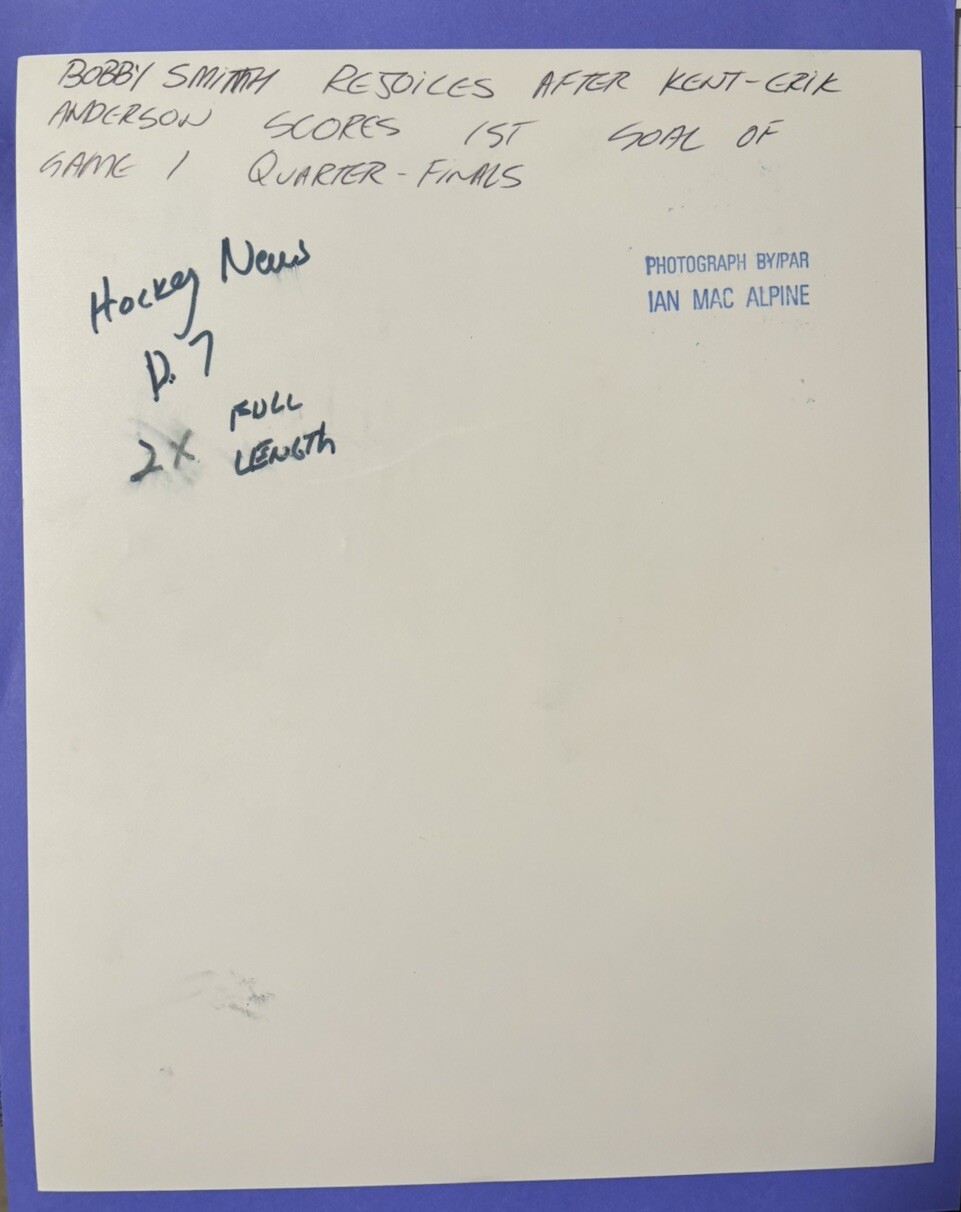 BOBBY SMITH REJOICES AFTER KENT-ERIK
ANDERSON SCORES 1ST GOAL OF
GAME 1 QUARTER-FINALS
Hockey News
p. 7
2X FULL
LENGTH
PHOTOGRAPH BY/PAR
IAN MAC ALPINE